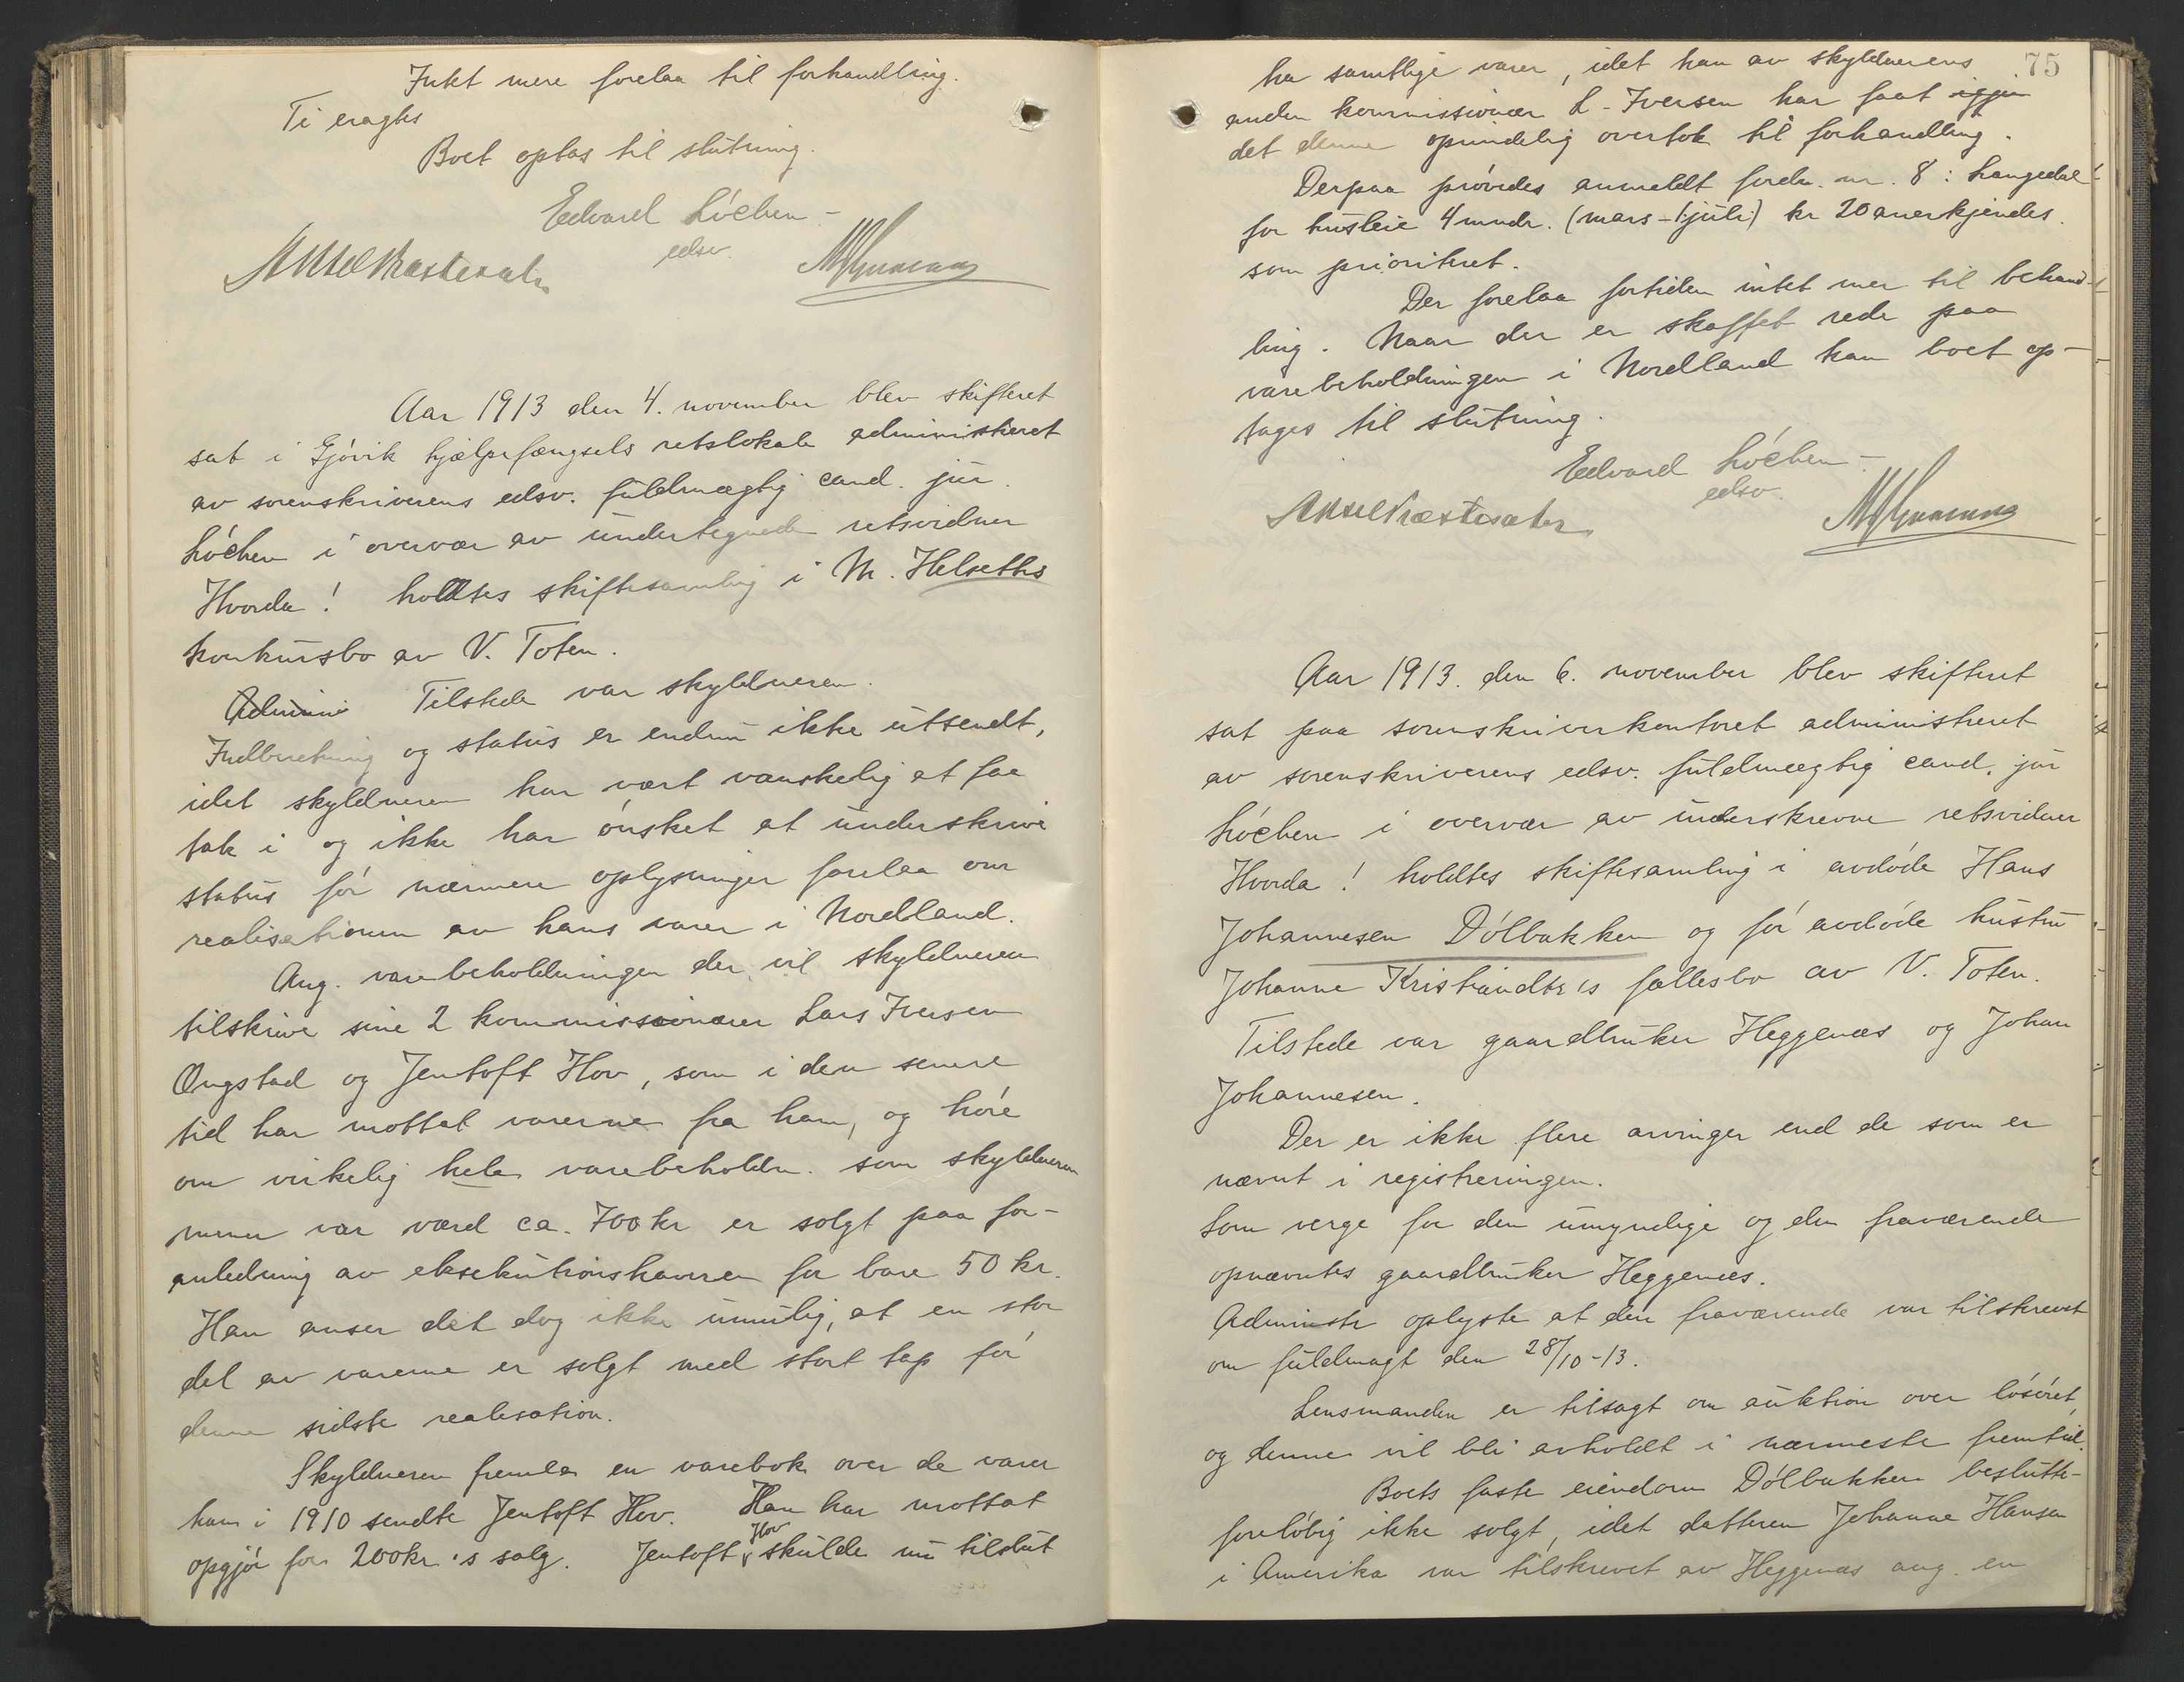 Intet mere forelaa til forhandling.
Ti eragtes
Boet optas til slutning.
Edvard Lóchen
edsv.
Aar 1913 den 4. november blev skifteret
sat i Gjóvik hjælpefængsels retslokale administreret
av sorenskriverens edsv. fuldmægtig cand. jur.
Lóchen i overvær av undertegnede retsvidner
Hvorda! holdtes skiftesamling i M. Helseths
konkursbo av V. Toten.
Admini Tilstede var skyldneren.
Indberetning og status er endnu ikke utsendt,
idet skyldneren har vært vanskelig at faa
tak i og ikke har ónsket at underskrive
status fór nærmere oplysninger forelaa om
realisationen av hans varer i Nordland.
Ang. varebeholdningen der vil skyldneren
tilskrive sine 2 kommissionærer Lars Iversen
Ongstad og Jentoft Hov, som i den senere
tid har mottat varerne fra ham, og hóre
om virkelig hele varebeholdn. som skyldneren
mener var værd ca. 700 kr er solgt paa for-
anledning av eksekutionshaveren for bare 50 kr.
Han anser det dog ikke umulig, at en stor
del av varerne er solgt med stort tap fór
denne sidste realisation.
Skyldneren fremla en varebok over de varer
han i 1910 sendte Jentoft Hov. Han har mottat
opgjór for 200 kr's salg. Jentoft Hov skulde nu tilslut
75
ha samtlige varer, idet han av skyldnerens
anden kommissionær L. Iversen har faat igjen
det denne oprindelig overtok til forhandling.
Derpaa próvedes anmeldt fordr. nr. 8: Langedal
for husleie 4 mndr. (mars - 1 juli) kr 20 anerkjendes
som prioriteret.
Der forelaa fortiden intet mer til behand-
ling. Naar der er skaffet rede paa
varebeholdningen i Nordland kan boet op-
tages til slutning.
Edvard Lóchen
edsv.
Aar 1913. den 6. november blev skifteret
sat paa sorenskriverkontoret administreret
av sorenskriverens edsv. fuldmægtig cand. jur
Lóchen i overvær av underskrevne retsvidner
Hvorda! holdtes skiftesamling i avdóde Hans
Johannesen Dólbakken og fór avdóde hustru
Johanne Kristiandtr's fællesbo av V. Toten.
Tilstede var gaardbruker Heggenæs og Johan
Johannesen.
Der er ikke flere arvinger end de som er
nævnt i registreringen.
Som verge for den umyndige og den fraværende
opnævntes gaardbruker Heggenæs.
Administr oplyste at den fraværende var tilskrevet
om fuldmagt den 28/10-13.
Lensmanden er tilsagt om auktion over lósóret,
og denne vil bli avholdt i nærmeste fremtid.
Boets faste eiendom Dólbakken beslutte-
forelóbig ikke solgt, idet datteren Johanne Hansen
i Amerika var tilskrevet av Heggenæs ang. en